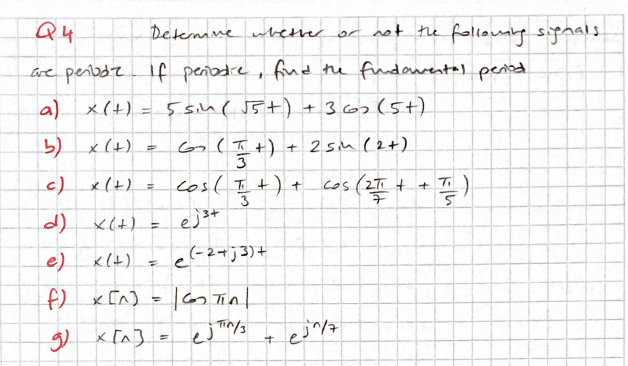 Q4 Determine whether or not the following signals
are periodic. If periodic, find the fundamental period
a) x(t) = 5 sin(√5t) + 3 cos(5t)
b) x(t) = cos(π/3 t) + 2 sin(2t)
c) x(t) = cos(π/3 t) + cos(2π/7 t + π/5)
d) x(t) = e^j3t
e) x(t) = e^(-2+j3)t
f) x[n] = |cos πn|
g) x[n] = e^jπn/3 + e^jn/7